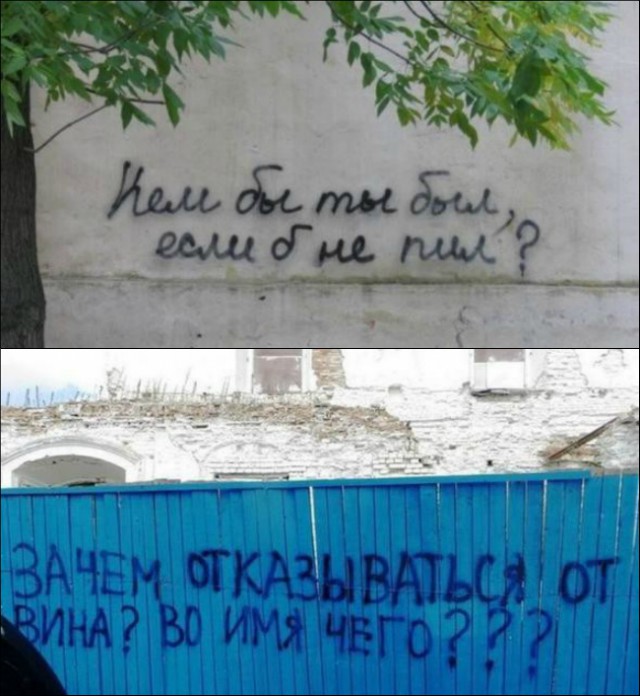 Кем бы ты был,
если б не пил?
ЗАЧЕМ ОТКАЗЫВАТЬСЯ ОТ
ВИНА? ВО ИМЯ ЧЕГО???